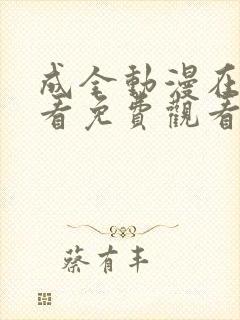 成全動漫在
看免費觀看
蔡有丰